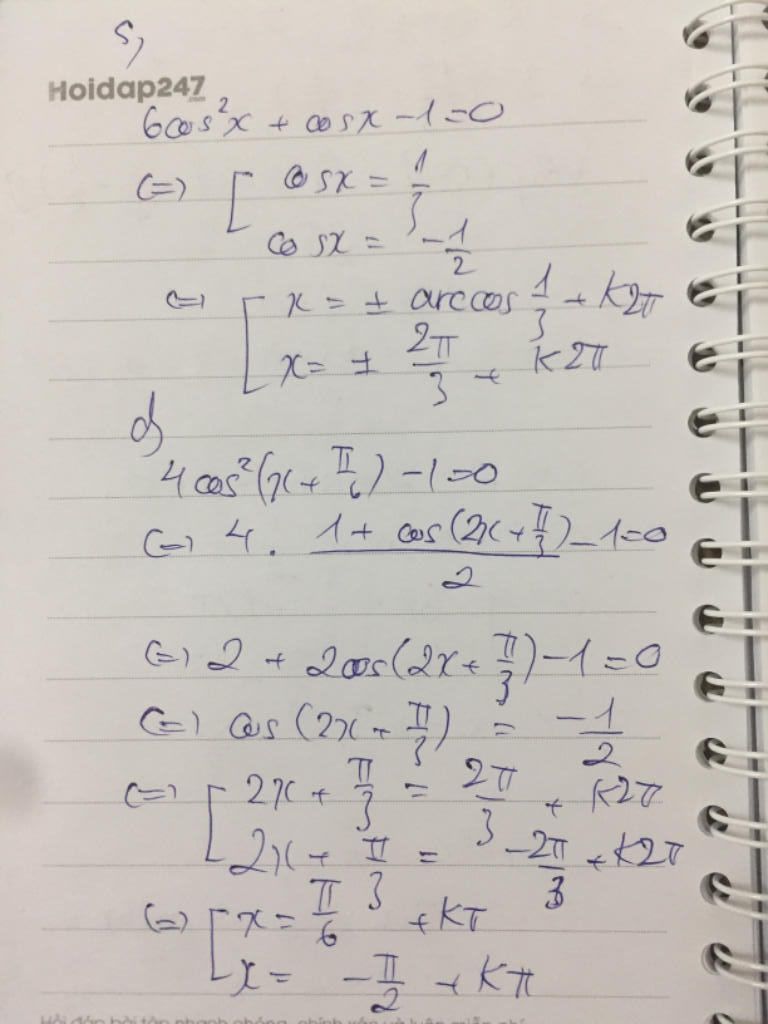 5,
Hoidap247
6cos²x + cosx - 1 = 0
(=) [ cosx = 1/3
cosx = -1/2
(=) [ x = ± arccos 1/3 + K2π
x = ± 2π/3 + K2π
d)
4cos²(x + π/6) - 1 = 0
(=) 4 . (1 + cos(2x + π/3))/2 - 1 = 0
(=) 2 + 2cos(2x + π/3) - 1 = 0
(=) cos(2x + π/3) = -1/2
(=) [ 2x + π/3 = 2π/3 + K2π
2x + π/3 = -2π/3 + K2π
(=) [ x = π/6 + Kπ
x = -π/2 + Kπ
Hỏi đáp bài tập nhanh chóng, chính xác và luôn miễn phí